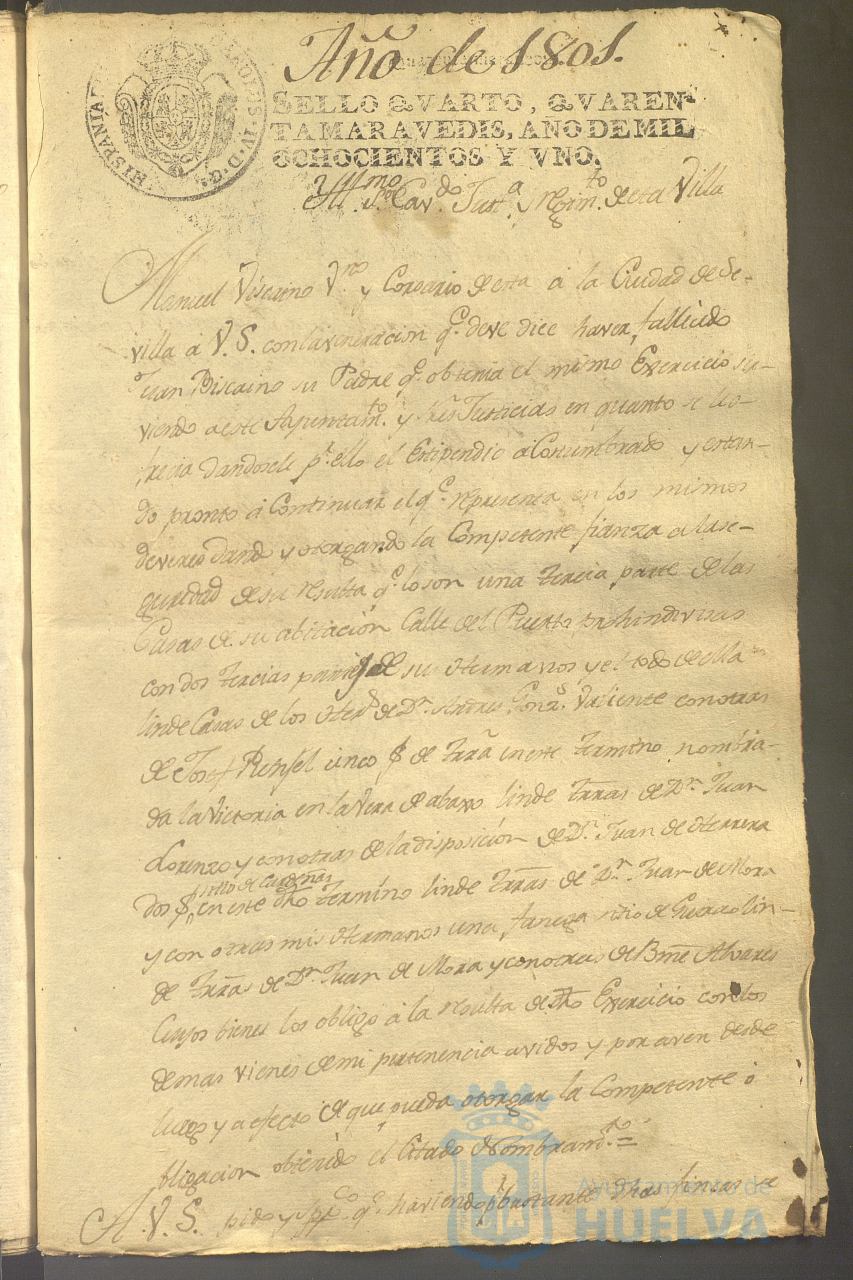 Año de 1801.
HISPANIAR CAROLUS IV D. G.
SELLO QVARTO, QVAREN
TAMARAVEDIS, AÑO DE MIL
OCHOCIENTOS Y VNO.
Cav.do Just.a y regim.to de esta Villa
Manuel Viscaino V.no y Corsario de esta á la Ciudad de Se-
villa á V. S. con la veneracion q.e deve dice haver fallecido
Juan Biscaino su Padre q.e obtenia el mismo Exercicio sir-
viendo a este Ayuntam.to y sres Justicias en quanto se le o-
frecia dandosele p.r ello el Estipendio acostumbrado y estan-
do pronto á Continuar el q.e representa en los mismos
deveres dando y otorgando la Competente fianza a la se-
guridad de su resulta q.e lo son una tercia parte de las
Casas de su abitación Calle del Puerto proindivisas
con dos tercias partes de sus Hermanos, y el todo de ella
linde Casas de los Hered.s de D.n Andres Gonz.s Valiente con otras
de Josef Rensel cinco de trrã en este termino nombra-
da la Victoria en la Vera de abaxo linde trras de D.n Juan
Lorenzo y con otras de la disposición de D.n Juan de Herrera
sitio de Cardenas
dos en este dho termino linde trras de D.n Juan de Mora
y con otras mis Hermanos una fanega sitio de lin-
de trras de D.n Juan de Mora y con otras de Bmẽ Alvares
Cuyos bienes los obligo á la resulta de dho Exercicio con los
demas vienes de mi pertenencia avidos y por aver desde
luego y a efecto de que pueda otorgar la Competente o
bligacion obtenido el Citado Nombram.to =
A V. S. pido y supp.co q.e haviendo p.r bastante dhas fincas se
Ayuntamiento de
HUELVA